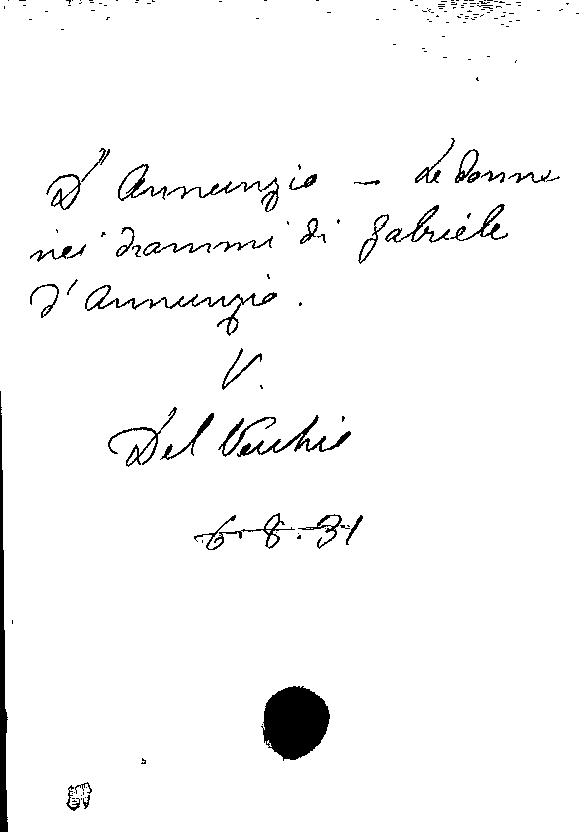 D'Annunzio – Le donne
nei drammi di Gabriele
d'Annunzio.
V.
Del Vecchio
6.8.31